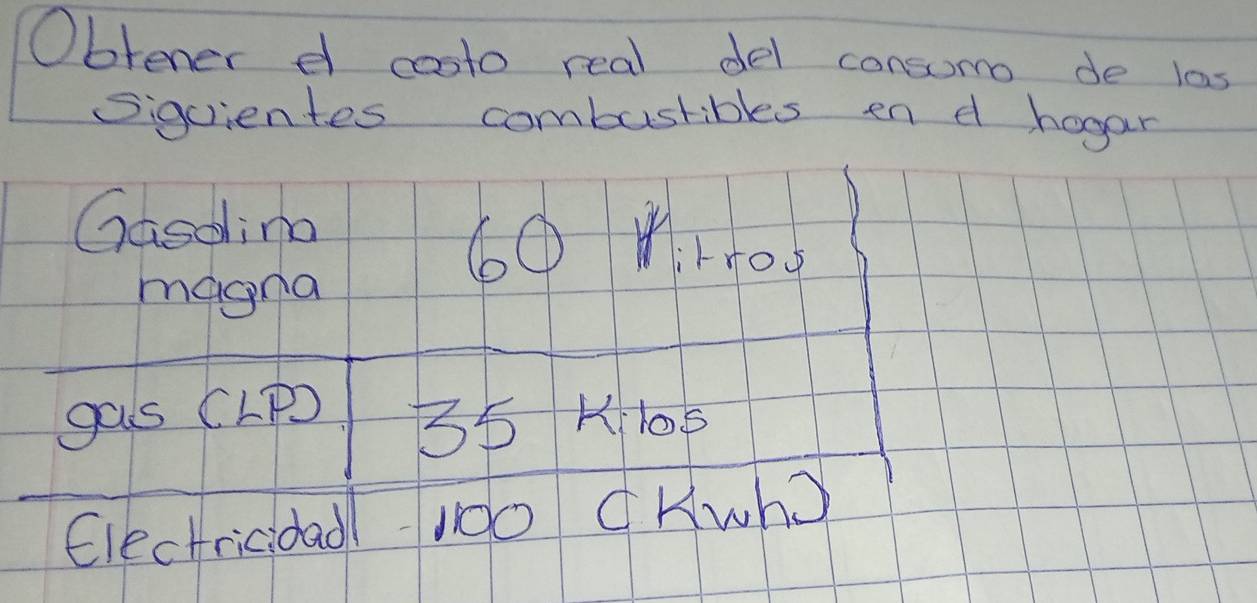 Obtener el costo real del consumo de los
siguientes combustibles en el hogar
Gasolina 60 litros
magna
gas (LP) 35 Kilos
Electricidad 100 (Kwh)